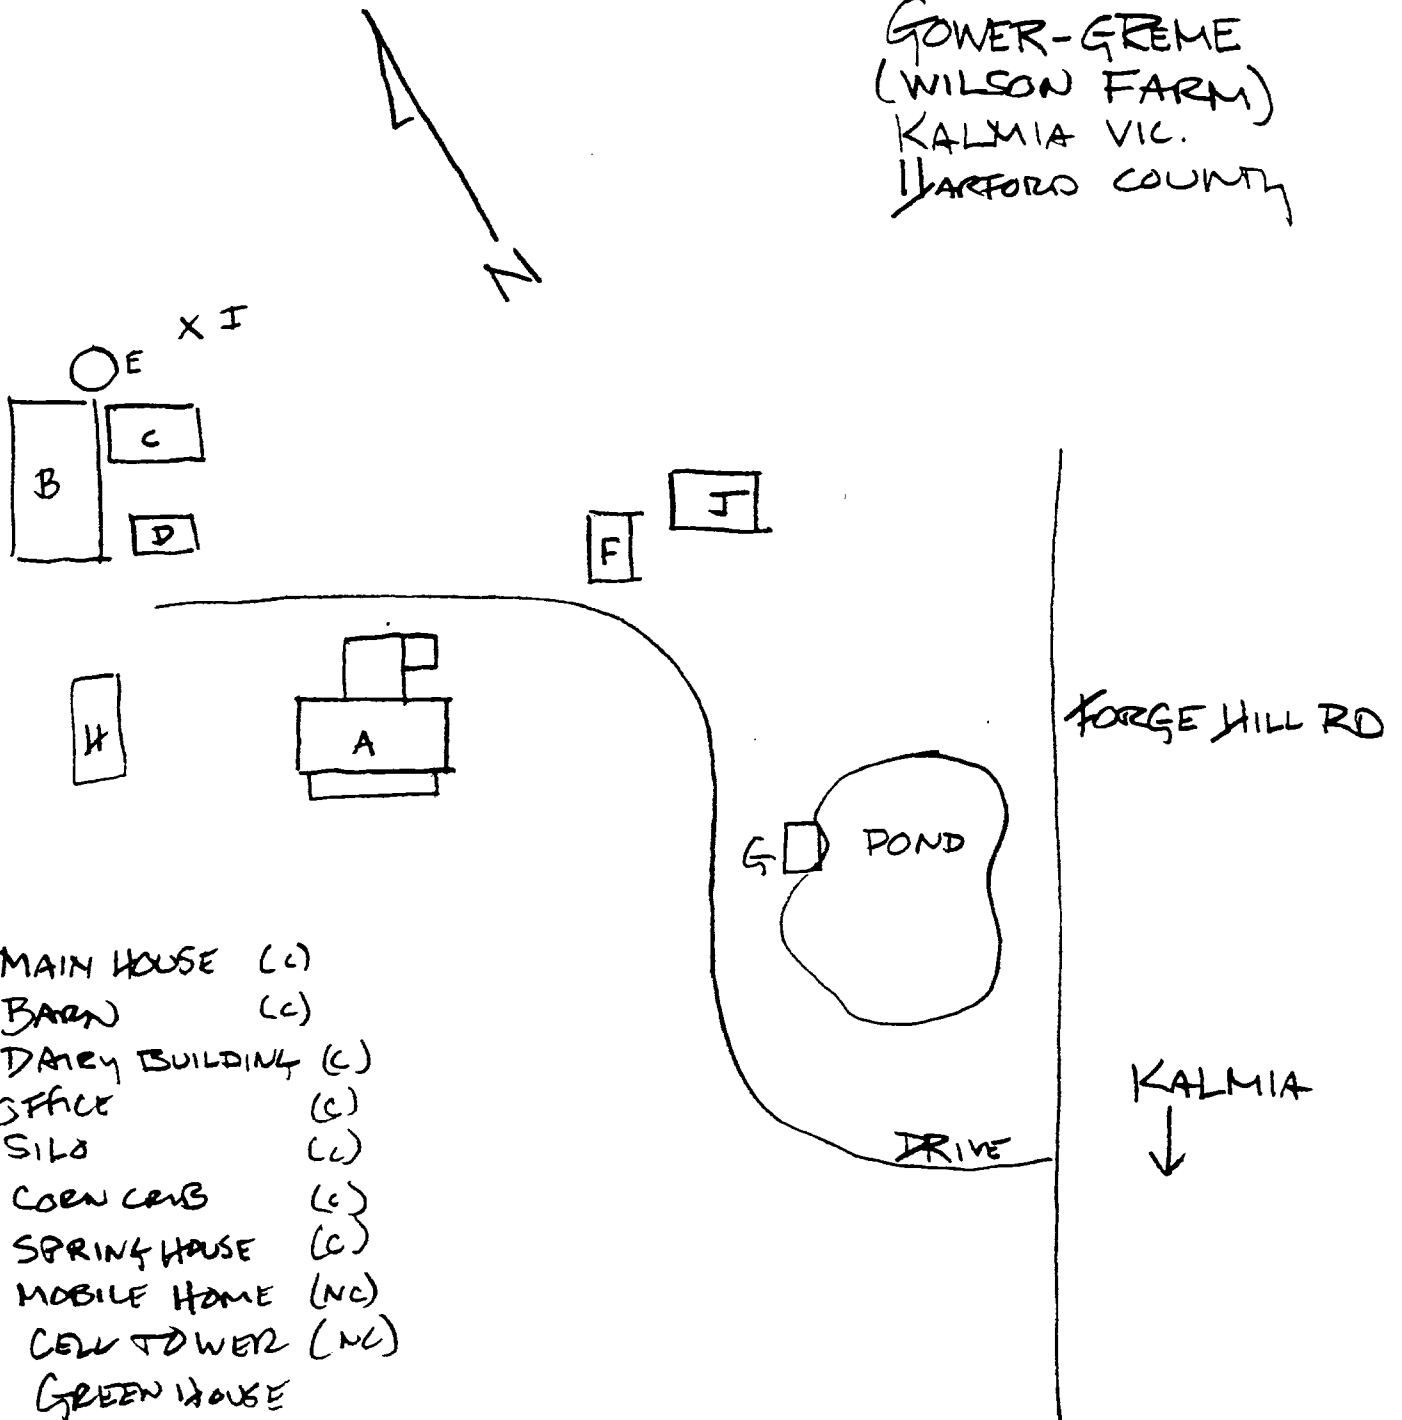 GOWER-GREME
(WILSON FARM)
KALMIA VIC.
HARFORD COUNTY
N
X I
E
C
B
D
J
F
FORGE HILL RD
H
A
G
POND
MAIN HOUSE (C)
BARN (C)
DAIRY BUILDING (C)
OFFICE (C)
SILO (C)
KALMIA
DRIVE
CORN CRIB (C)
SPRING HOUSE (C)
MOBILE HOME (NC)
CELL TOWER (NC)
GREEN HOUSE